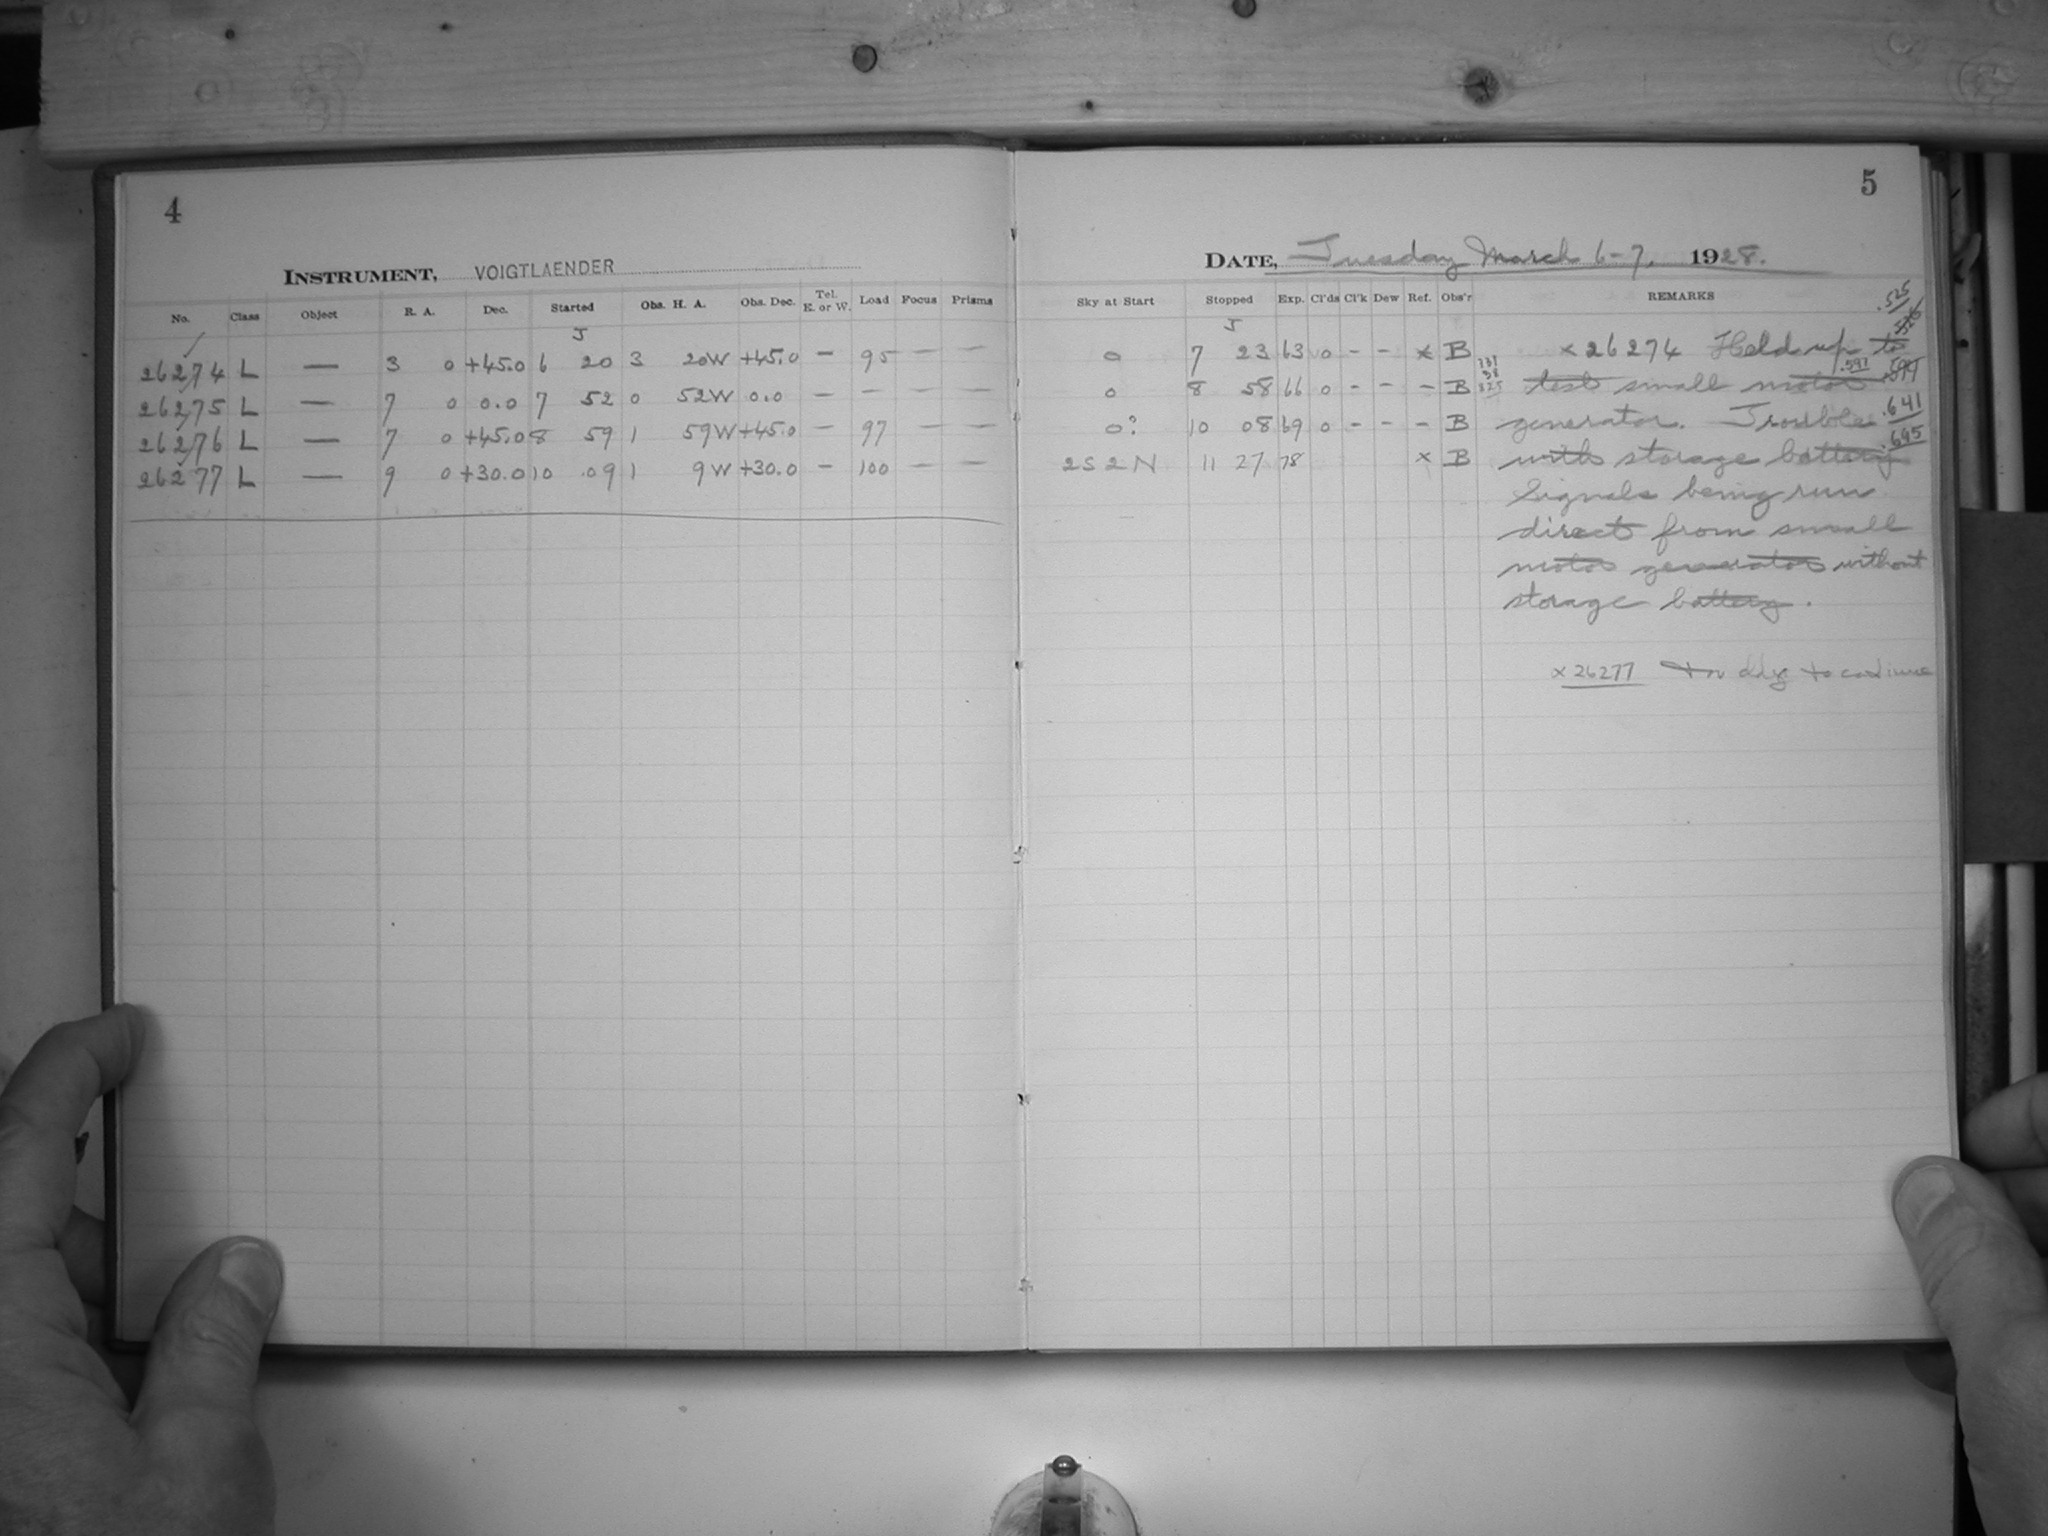 4
INSTRUMENT, VOIGTLAENDER
No. Class Object R. A. Dec. Started Obs. H. A. Obs. Dec. Tel. E. or W. Load Focus Prisms
J
26274 L — 3 0 +45.0 6 20 3 20W +45.0 — 95 — —
26275 L — 7 0 0.0 7 52 0 52W 0.0 — — — —
26276 L — 7 0 +45.0 8 59 1 59W +45.0 — 97 — —
26277 L — 9 0 +30.0 10 09 1 9W +30.0 — 100 — —
5
DATE, Tuesday March 6-7. 1928.
Sky at Start Stopped Exp. Cl'ds Cl'k Dew Ref. Obs'r REMARKS
J
.525
.526
0 7 23 63 0 - - x B x 26274 Held up to
0 8 58 66 0 - - - B test small motor
.597
0? 10 08 69 0 - - - B generator. Trouble .641
2S 2N 11 27 78 x B with storage battery .695
Signals being run
direct from small
motor generator without
storage battery.
x 26277 to continue